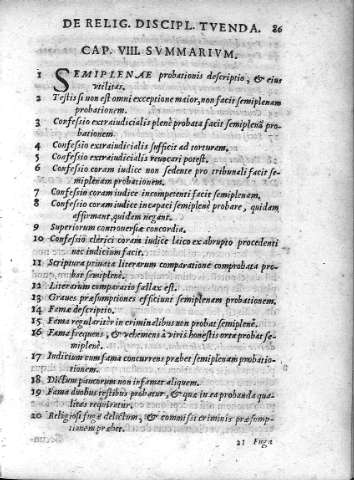 DE RELIG. DISCIPL. TVENDA. 86
CAP. VIII. SVMMARIVM.
1 SEMIPLENAE probationis descriptio, & eius
vtilitas.
2 Testis si non est omni exceptione maior, non facit semiplenam
probationem.
3 Confessio extraiudicialis plenè probata facit semiplenā pro-
bationem.
4 Confessio extraiudicialis sufficit ad torturam.
5 Confessio extraiudicialis reuocari potest.
6 Confessio coram iudice non sedente pro tribunali facit se-
miplenam probationem.
7 Confessio coram iudice incompetenti facit semiplenam.
8 Confessio coram iudice incapaci semiplenè probare, quidam
affirmant, quidam negant.
9 Superiorum controuersiæ concordia.
10 Confessio clerici coram iudice laico ex abrupto procedenti
nec indicium facit.
11 Scriptura priuata literarum comparatione comprobata pro-
bat semiplenè.
12 Literarum comparatio fallax est.
13 Graues præsumptiones efficiunt semiplenam probationem.
14 Famæ descriptio.
15 Fama regulariter in criminalibus non probat semiplenè.
16 Fama frequens, & vehemens à viris honestis orta probat se-
miplenè.
17 Indicium cum fama concurrens præbet semiplenam probatio-
tionem.
18 Dictum paucorum non infamat aliquem.
19 Fama duobus testibus probatur, & quæ in ea probanda qua-
litas requiratur.
20 Religiosi fuga delictum, & commissi criminis præsump-
tionem præbet.
21 Fuga